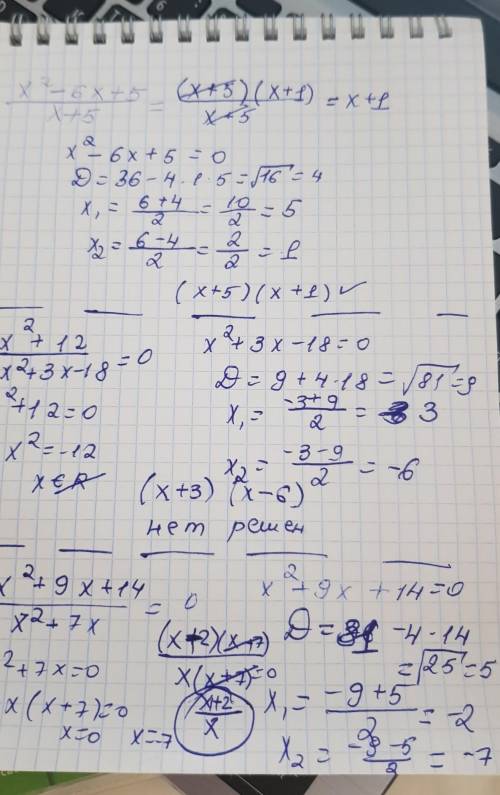 x² - 6x + 5 / x + 5 = (x+5)(x+1) / x+5 = x+1
x² - 6x + 5 = 0
D = 36 - 4 · 1 · 5 = √16 = 4
x₁ = 6+4 / 2 = 10 / 2 = 5
x₂ = 6-4 / 2 = 2 / 2 = 1
(x+5)(x+1) ✓
x² + 12 / x² + 3x - 18 = 0
²+12 = 0
x² = -12
x ∈ R
x² + 3x - 18 = 0
D = 9 + 4 · 18 = √81 = 9
x₁ = -3+9 / 2 = 3
x₂ = -3-9 / 2 = -6
(x+3) (x-6)
нет решен
x² + 9x + 14 / x² + 7x = 0
²+7x = 0
x(x+7) = 0
x=0 x=-7
(x+2)(x+7) / x(x+7) = 0
x+2 / x
x² + 9x + 14 = 0
D = 81 - 4 · 14
= √25 = 5
x₁ = -9+5 / 2 = -2
x₂ = -9-5 / 2 = -7